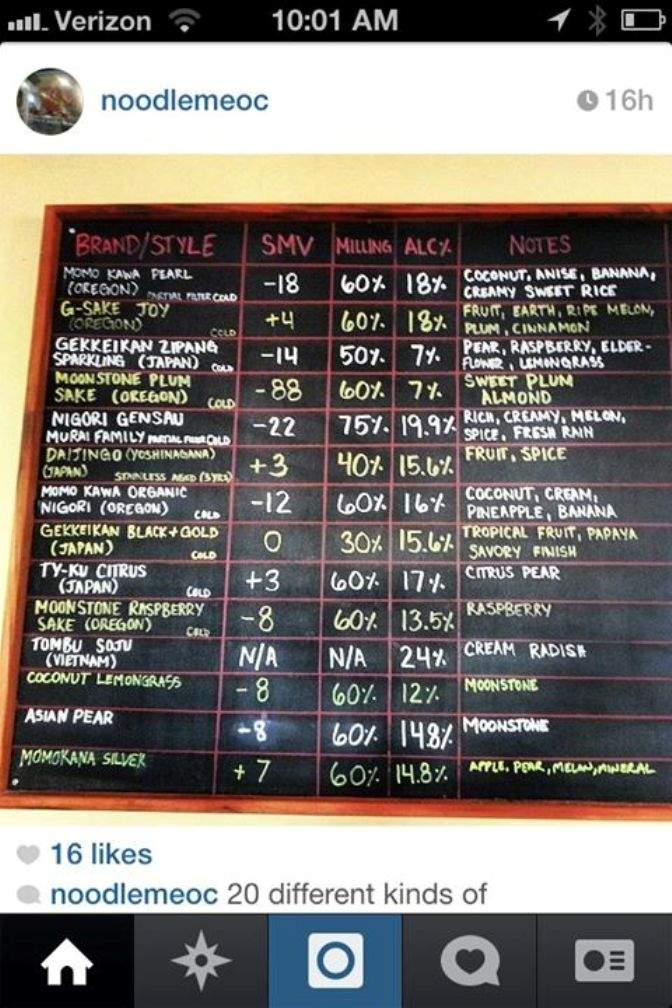 Verizon 10:01 AM
noodlemeoc 16h
BRAND/STYLE SMV MILLING ALC% NOTES
MOMO KAWA PEARL
(OREGON) PARTIAL FILTER COLD -18 60% 18% COCONUT, ANISE, BANANA,
CREAMY SWEET RICE
G-SAKE JOY
(OREGON) COLD +4 60% 18% FRUIT, EARTH, RIPE MELON,
PLUM, CINNAMON
GEKKEIKAN ZIPANG
SPARKLING (JAPAN) COLD -14 50% 7% PEAR, RASPBERRY, ELDER-
FLOWER, LEMONGRASS
MOONSTONE PLUM
SAKE (OREGON) COLD -88 60% 7% SWEET PLUM
ALMOND
NIGORI GENSAU
MURAI FAMILY PARTIAL FILTER COLD -22 75% 19.9% RICH, CREAMY, MELON,
SPICE, FRESH RAIN
DAIJINGO (YOSHINAGANA)
(JAPAN) STAINLESS AGED (3 YRS) +3 40% 15.6% FRUIT, SPICE
MOMO KAWA ORGANIC
NIGORI (OREGON) COLD -12 60% 16% COCONUT, CREAM,
PINEAPPLE, BANANA
GEKKEIKAN BLACK+GOLD
(JAPAN) COLD 0 30% 15.6% TROPICAL FRUIT, PAPAYA
SAVORY FINISH
TY-KU CITRUS
(JAPAN) COLD +3 60% 17% CITRUS PEAR
MOONSTONE RASPBERRY
SAKE (OREGON) COLD -8 60% 13.5% RASPBERRY
TOMBU SOJU
(VIETNAM) N/A N/A 24% CREAM RADISH
COCONUT LEMONGRASS -8 60% 12% MOONSTONE
ASIAN PEAR -8 60% 14.8% MOONSTONE
MOMOKANA SILVER +7 60% 14.8% APPLE, PEAR, MELAN, MINERAL
16 likes
noodlemeoc 20 different kinds of